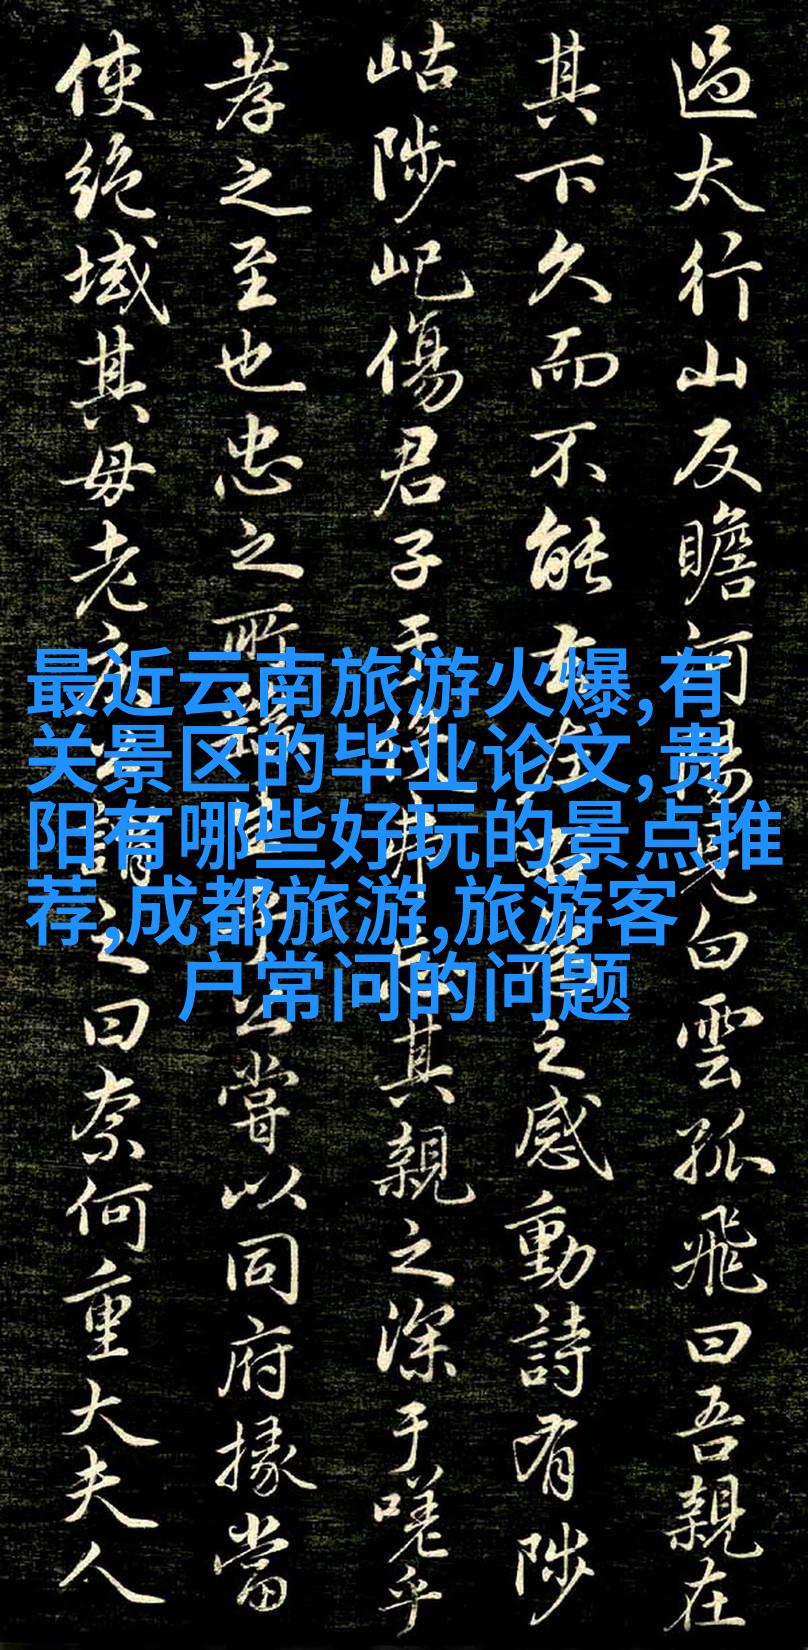 最近云南旅游火爆,有
关景区的毕业论文,贵
阳有哪些好玩的景点推
荐,成都旅游,旅游客
户常问的问题
過太行山反瞻河陽見白雲孤飛曰吾親在
其下久而不能去左右為之感動詩有陟
岵陟屺傷君子于役弗忘其親之深于嗟乎
孝之至也忠之所繇生乎公嘗以同府掾當
使絕域其母老疾公謂之曰奈何重大夫人